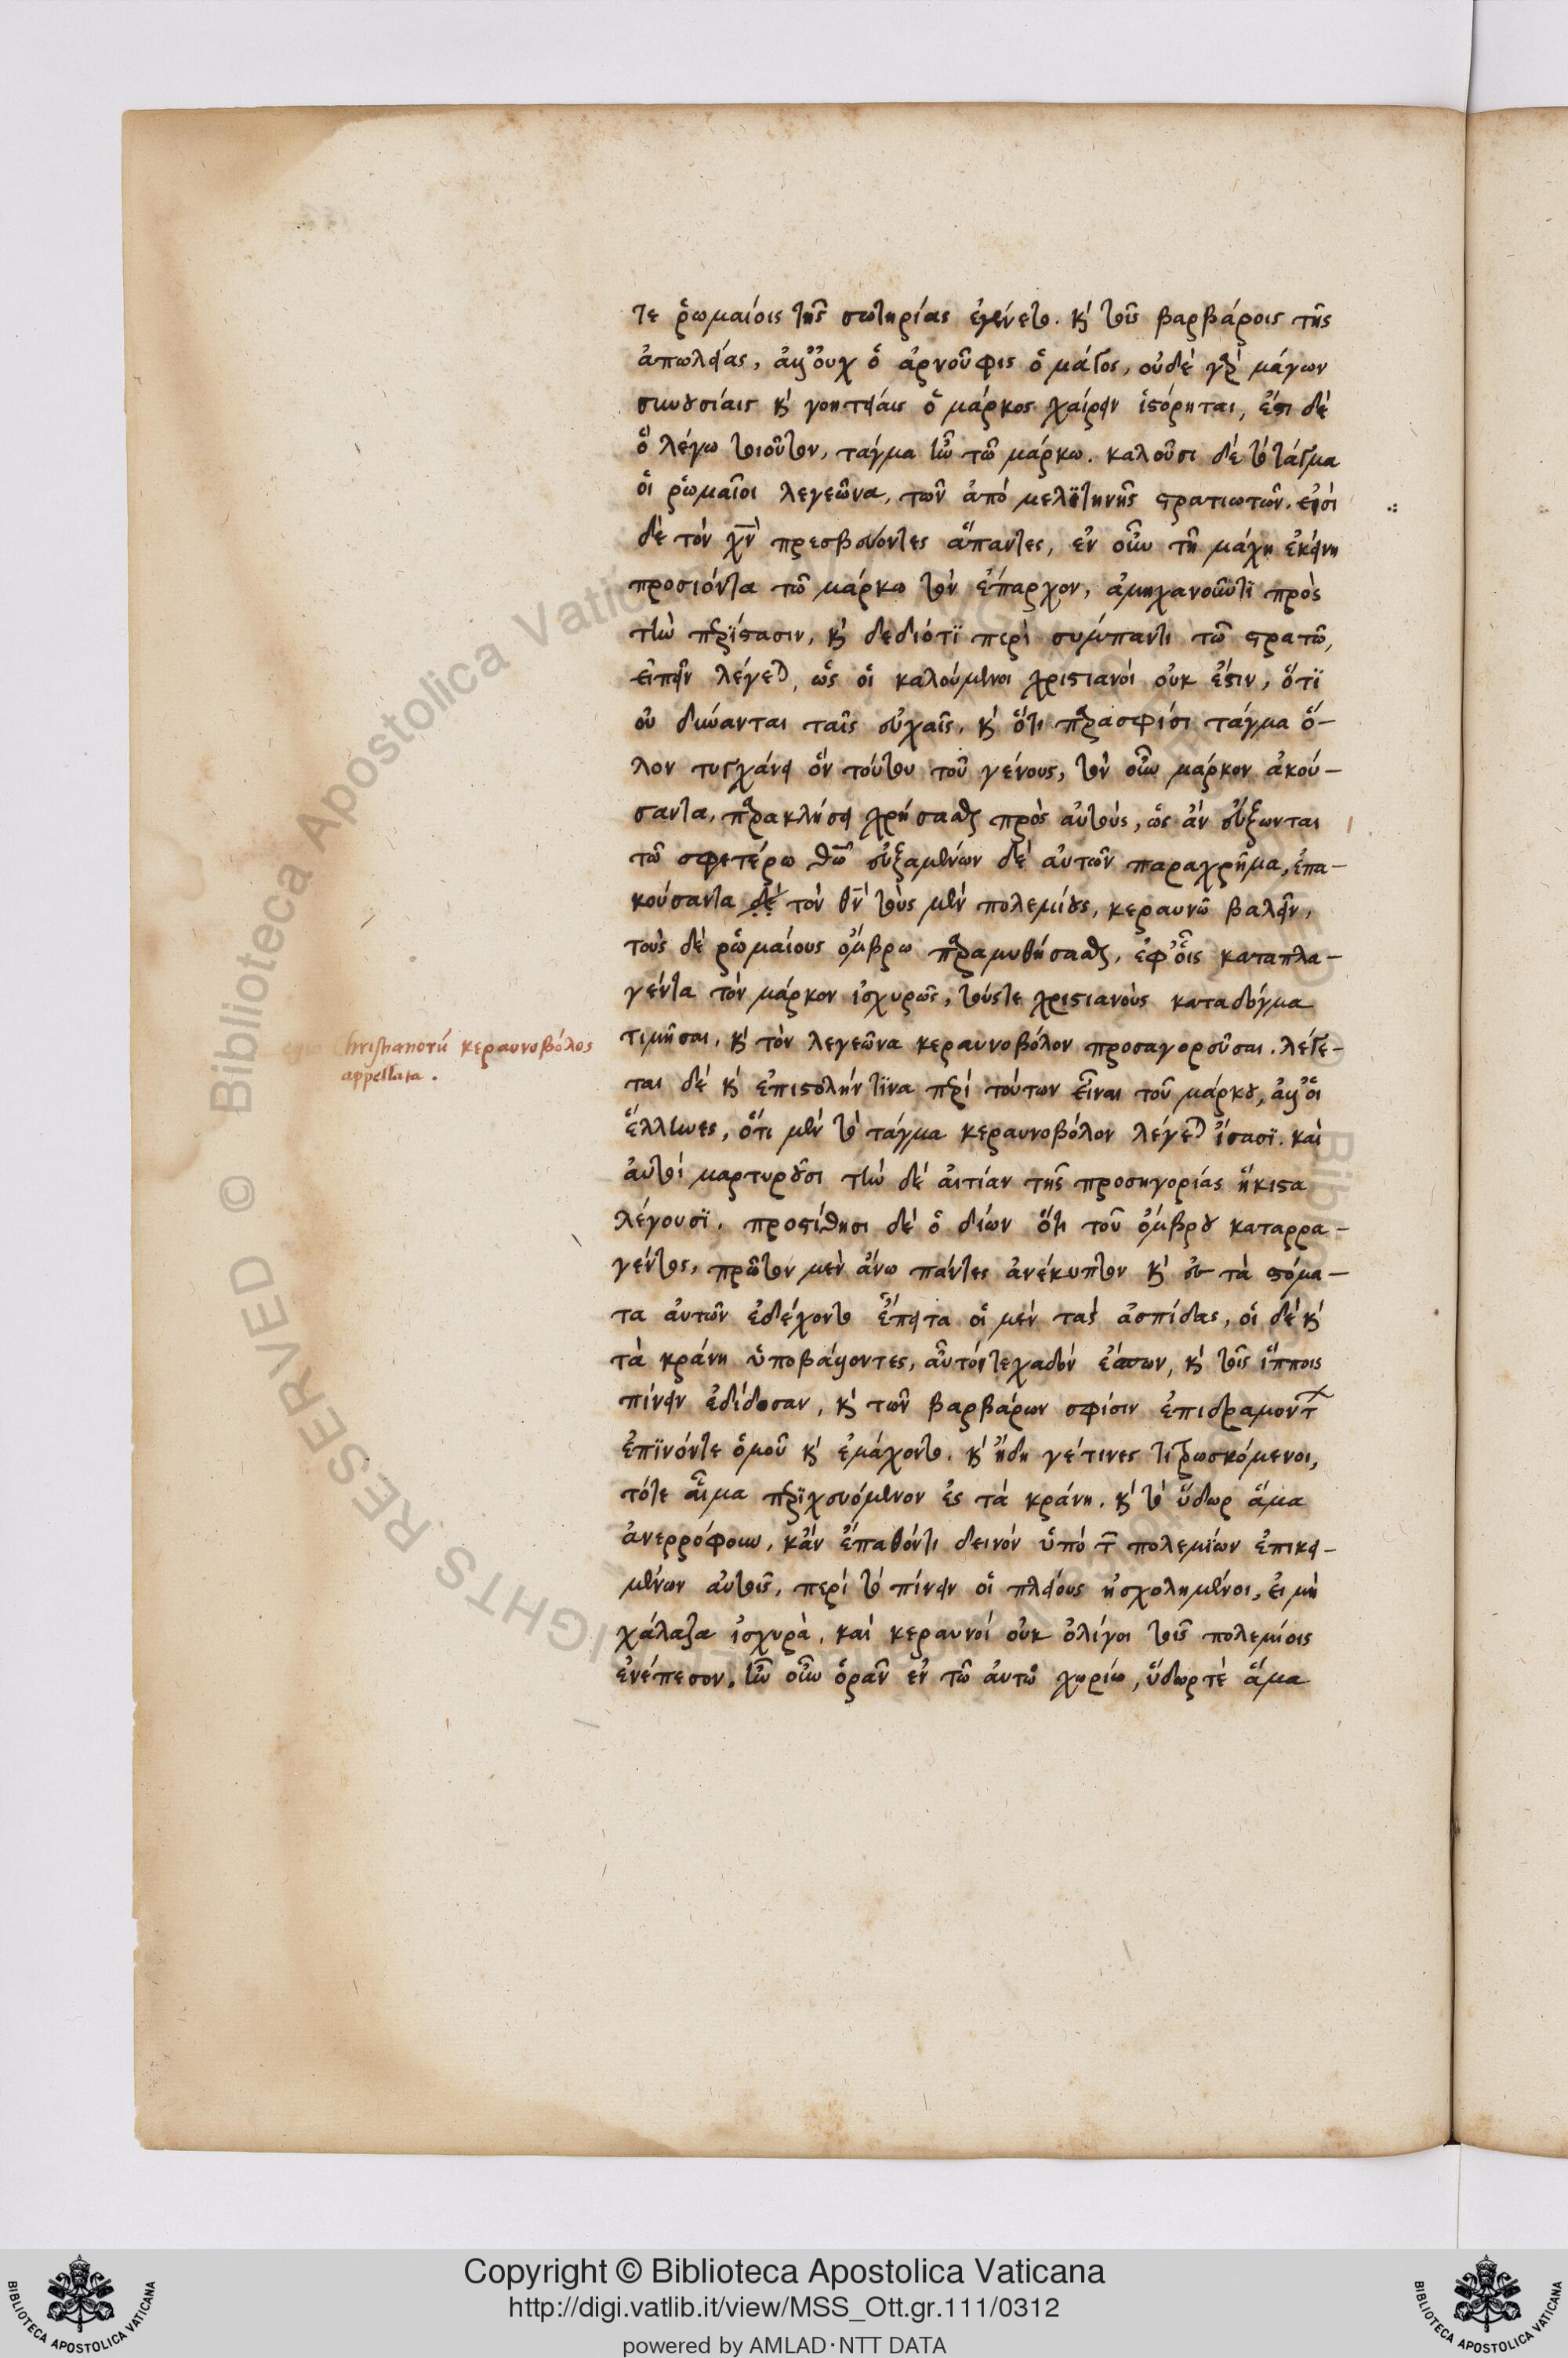 τε ῥωμαίοις τῆς σωτηρίας ἐγένετο. κỳ τοῖς βαρβάροις τῆς
ἀπωλείας, ἀλλ' οὐχ ὁ ἀρνοῦφις ὁ μάγος, οὐδὲ γὰρ μάγων
συνουσίαις κỳ γοητείαις ὁ μάρκος χαίρειν ἱστόρηται, ἔστι δὲ
ὃ λέγω τοιοῦτον, τάγμα ἦν τῶ μάρκω. καλοῦσι δὲ τὸ τάγμα
οἱ ῥωμαῖοι λεγεῶνα, τῶν ἀπὸ μελϊτηνῆς στρατιωτῶν. εἰσὶ
δὲ τὸν χν̅ πρεσβεύοντες ἅπαντες, ἐν οὖν τῆ μάχη ἐκείνη
προσιόντα τῶ μάρκω τὸν ἔπαρχον, ἀμηχανοῦντι πρὸς
τὴν περίστασιν, κỳ δεδιότϊ περὶ σύμπαντι τῶ στρατῶ,
εἰπεῖν λέγεται, ὡς οἱ καλούμενοι χριστιανοὶ οὐκ ἔστιν, ὅτϊ
οὐ δύνανται ταῖς εὐχαῖς, κỳ ὅτι παρασφίσι τάγμα ὅ-
λον τυγχάνει ὂν τούτου τοῦ γένους, τὸν οὖν μάρκον ἀκού-
σαντα, παρακλήσει χρήσασθαι πρὸς αὐτοὺς, ὡς ἂν εὔξωνται
τῶ σφετέρω θω̅ εὐξαμένων δὲ αὐτῶν παραχρῆμα, ἐπα-
κούσαντα δὲ τὸν θν̅ τοὺς μὲν πολεμίους, κεραυνῶ βαλεῖν,
τοὺς δὲ ῥωμαίους ὄμβρω παραμυθήσασθαι, ἐφ' οἷς καταπλα-
γέντα τὸν μάρκον ἰσχυρῶς, τούστε χριστιανοὺς καταδόγμα
τιμῆσαι, κỳ τὸν λεγεῶνα κεραυνοβόλον προσαγορεῦσαι. λέγε-
ται δὲ κỳ ἐπιστολήν τϊνα περὶ τούτων εἶναι τοῦ μάρκου, ἀλλ' οἱ
ἕλληνες, ὅτι μὲν τὸ τάγμα κεραυνοβόλον λέγεται ἴσασϊ. καὶ
αὐτοὶ μαρτυροῦσι τὴν δὲ αἰτίαν τῆς προσηγορίας ἥκιστα
λέγουσϊ. προστίθησι δὲ ὁ δίων ὅτι τοῦ ὄμβρου καταρρα-
γέντος, πρῶτον μὲν ἄνω πάντες ἀνέκυπτον κỳ ἐς τὰ στόμα-
τα αὐτῶν ἐδέχοντο ἔπειτα οἱ μὲν τὰς ἀσπίδας, οἱ δὲ κỳ
τὰ κράνη ὑποβάλλοντες, αὐτόντεχαδὸν ἔσπων, κỳ τοῖς ἵπποις
πίνειν ἐδίδοσαν, κỳ τῶν βαρβάρων σφίσιν ἐπιδραμόντων
ἔπϊνόντε ὁμοῦ κỳ ἐμάχοντο. κỳ ἤδη γέτινες τιτρωσκόμενοι,
τότε αἷμα περιχεόμενον ἐς τὰ κράνη. κỳ τὸ ὕδωρ ἅμα
ἀνερρόφουν, κἂν ἔπαθόντι δεινὸν ὑπὸ τῶν πολεμίων ἐπικει-
μένων αὐτοῖς, περὶ τὸ πίνειν οἱ πλείους ἠσχολημένοι, εἰ μὴ
χάλαζα ἰσχυρὰ, καὶ κεραυνοὶ οὐκ ὀλίγοι τοῖς πολεμίοις
ἐνέπεσον, ἦν οὖν ὁρᾶν ἐν τῶ αὐτῶ χωρίω, ὕδωρτὲ ἅμα
Christianorũ κεραυνοβόλος
appellata.
Copyright © Biblioteca Apostolica Vaticana
http://digi.vatlib.it/view/MSS_Ott.gr.111/0312
powered by AMLAD·NTT DATA
BIBLIOTECA APOSTOLICA VATICANA
BIBLIOTECA APOSTOLICA VATICANA